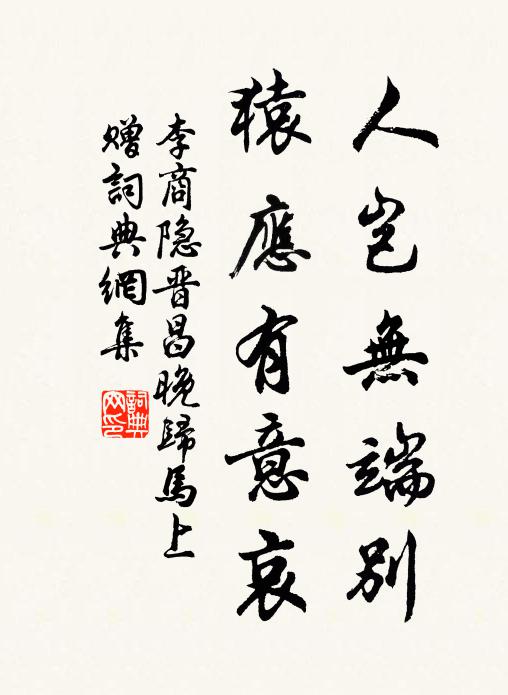 人豈無端別
猿應有意哀
李商隐晋昌晚歸馬上
贈詞典網集
詞典
网印